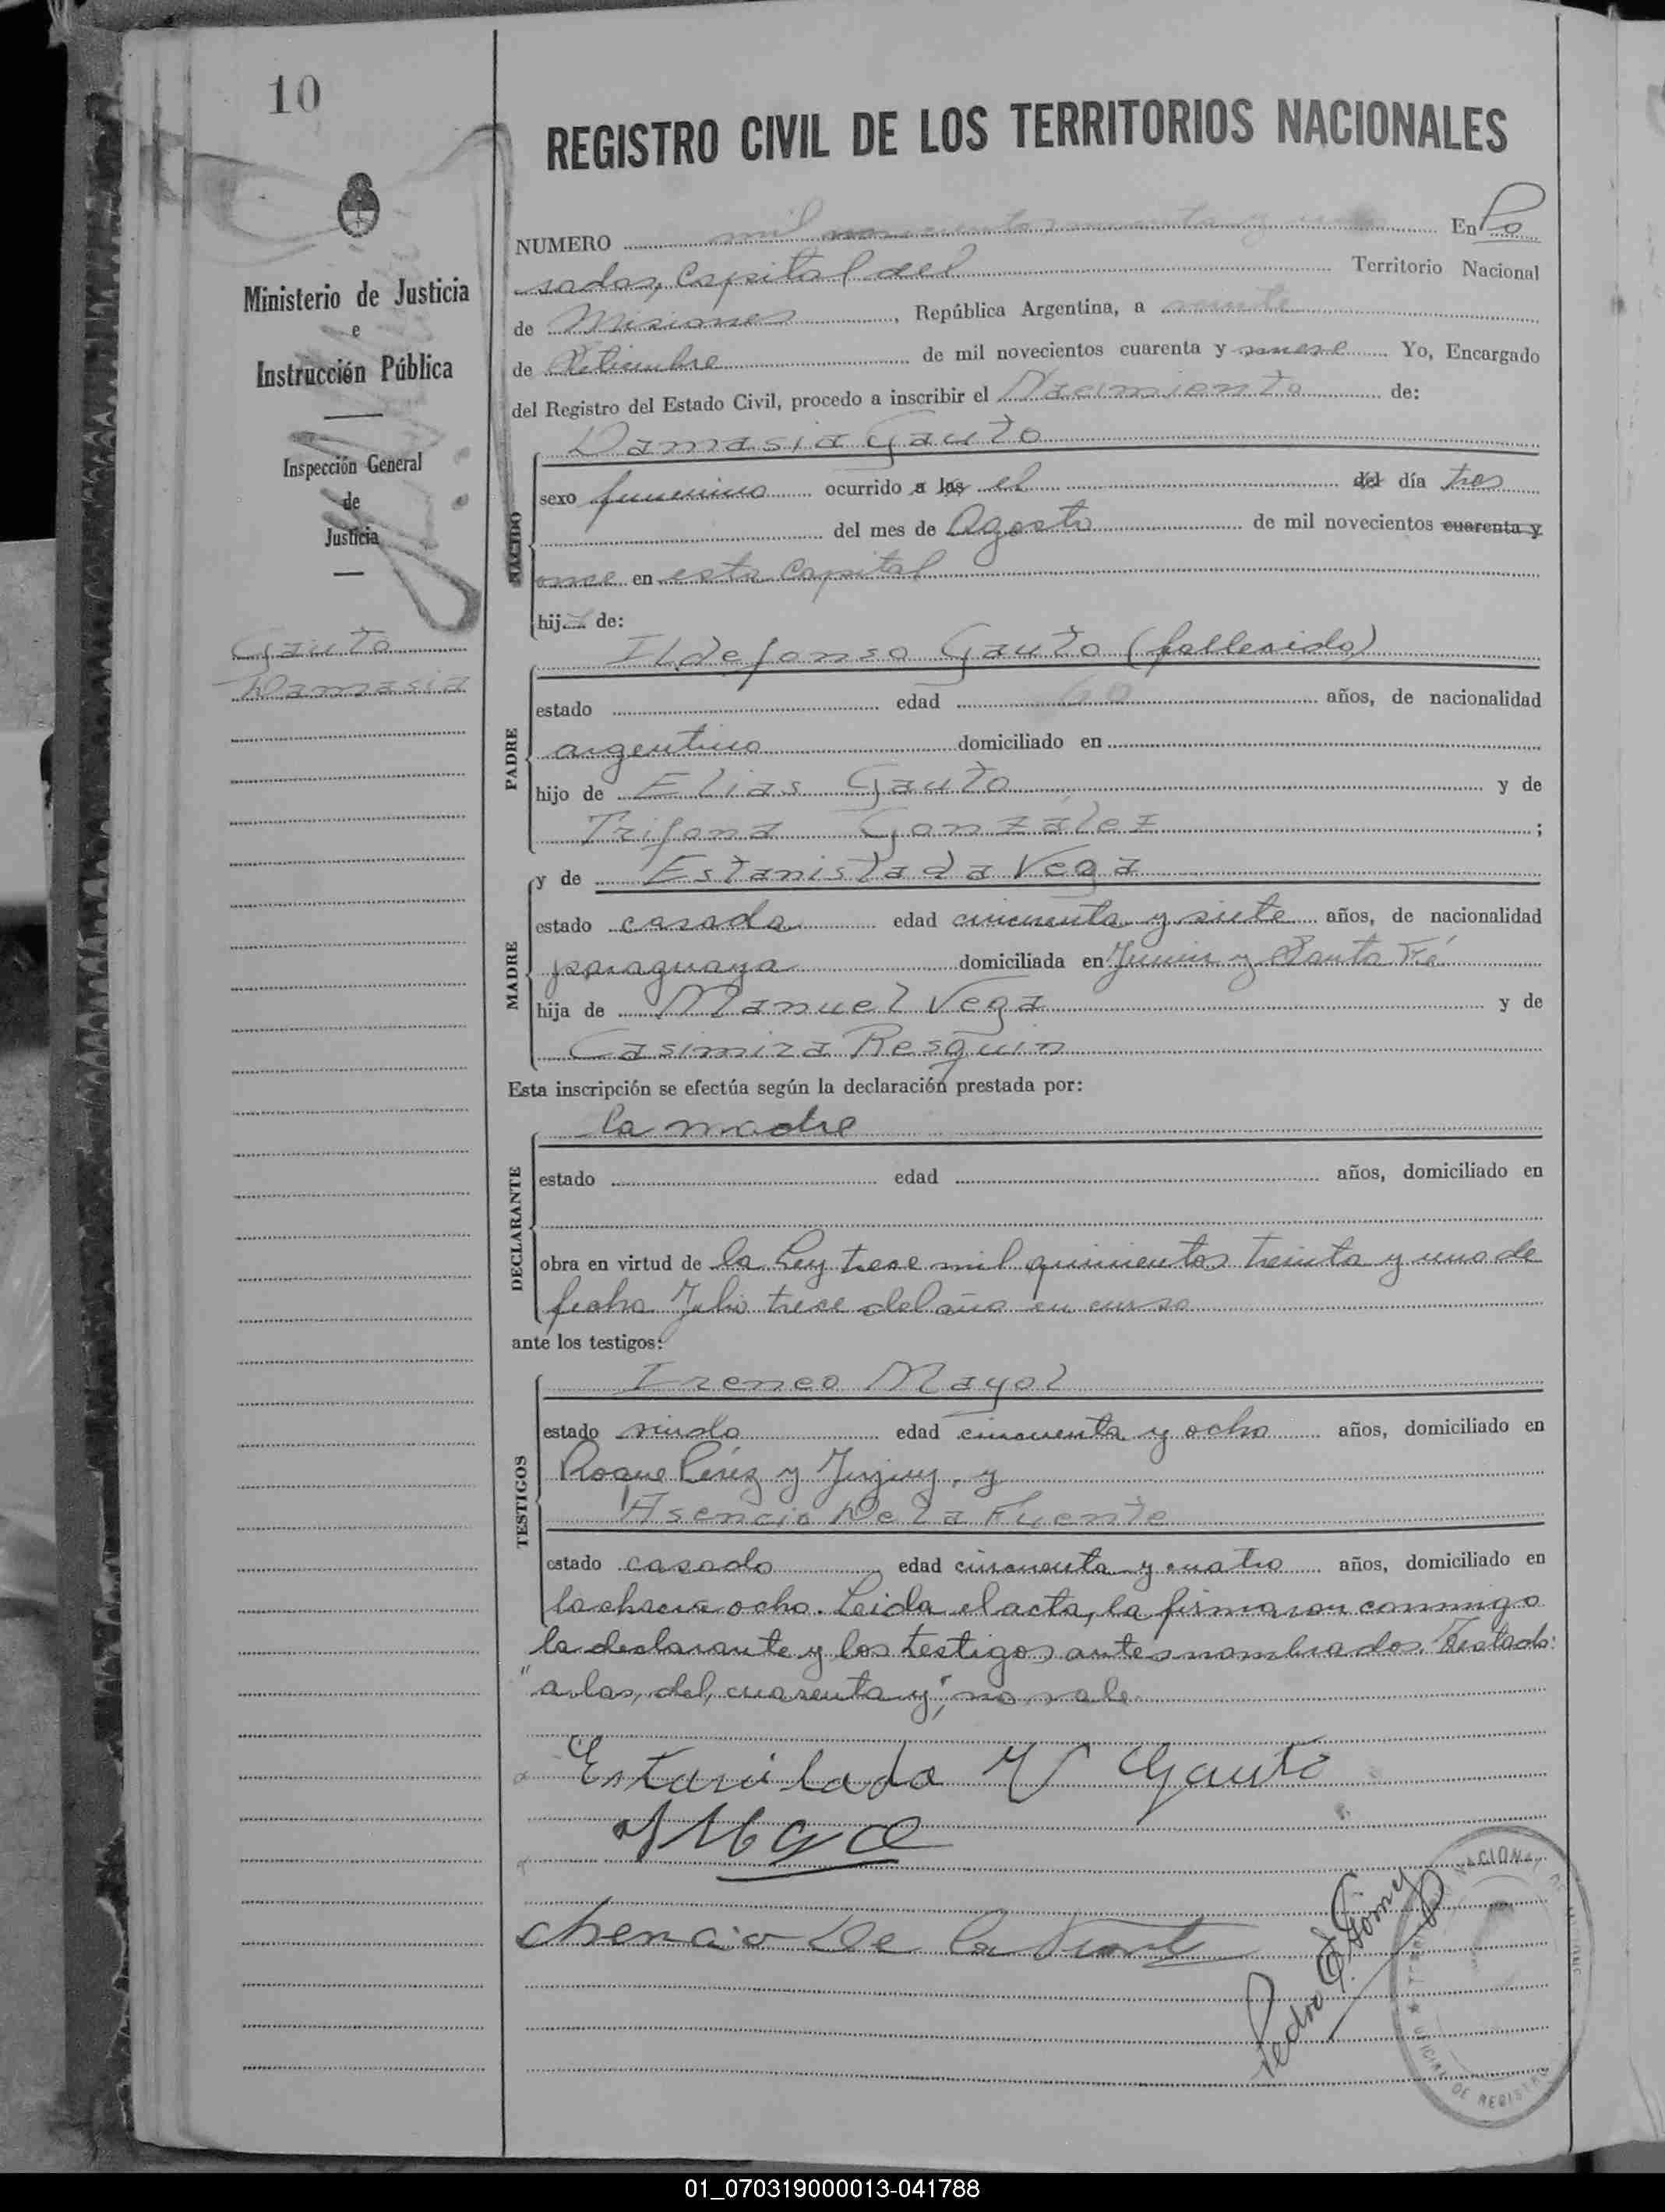 10
REGISTRO CIVIL DE LOS TERRITORIOS NACIONALES
NUMERO mil novecientos noventa y uno En Po
sadas, Capital del Territorio Nacional
de Misiones, República Argentina, a veinte
de Setiembre de mil novecientos cuarenta y nueve Yo, Encargado
del Registro del Estado Civil, procedo a inscribir el Nacimiento de:
Ministerio de Justicia
e
Instrucción Pública
Inspección General
de
Justicia
Gauto
Damasia
NACIDO
Damasia Gauto
sexo femenino ocurrido a las el del día tres
del mes de Agosto de mil novecientos cuarenta y
once en esta Capital
hija de:
PADRE
Ildefonso Gauto (fallecido)
estado edad años, de nacionalidad
argentino domiciliado en
hijo de Elias Gauto y de
Trifona González;
MADRE
y de Estanislada Vega
estado casada edad cincuenta y siete años, de nacionalidad
paraguaya domiciliada en Junin y Santa Fé
hija de Manuel Vega y de
Casimira Resquin
Esta inscripción se efectúa según la declaración prestada por:
DECLARANTE
la madre
estado edad años, domiciliado en
obra en virtud de la Ley trece mil quinientos treinta y uno de
fecha Julio trece del año en curso
ante los testigos:
TESTIGOS
Ireneo Mayol
estado viudo edad cincuenta y ocho años, domiciliado en
Roque Pérez y Jujuy, y
Asencio De la Fuente
estado casado edad cincuenta y cuatro años, domiciliado en
la chacra ocho. Leida el acta, la firmaron conmigo
la declarante y los testigos antes nombrados. Testado:
"a las, del, cuarenta y", no vale
Estanilada V Gauto
Asencio De la Fuente
Pedro E. Gómez
NACIONAL DE
OFICINA DE REGISTRO
01_070319000013-041788